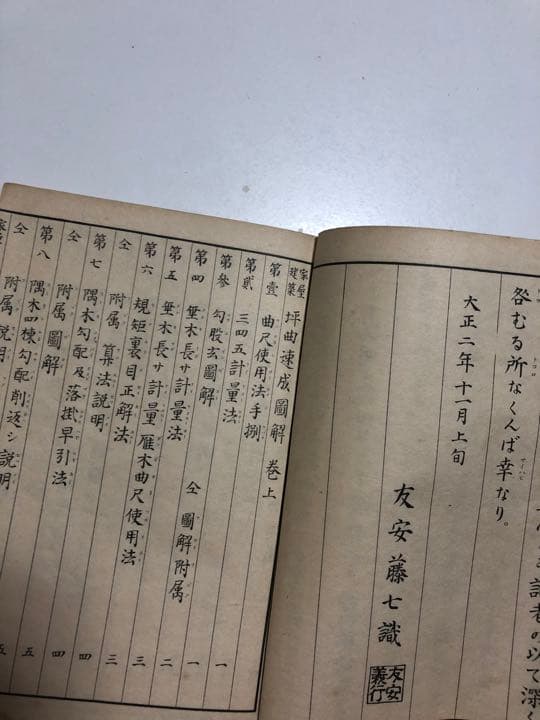 咎むる所なくんば幸なり。
大正二年十一月上旬
友安藤七識
友安義行
家屋建築 坪曲速成圖解 卷上
第壹 曲尺使用法手捌
第貳 三四五計量法 一
第參 勾股玄圖解 一
第四 垂木長サ計量法 仝 圖解附属 二
第五 垂木長サ計量法 三
第六 規矩裏目正解法 雁木曲尺使用法 三
仝 附属 算法説明 四
第七 隅木勾配及落掛早引法 四
仝 附属圖解 五
第八 隅木四棟勾配削返シ説明 五
仝 附属説明